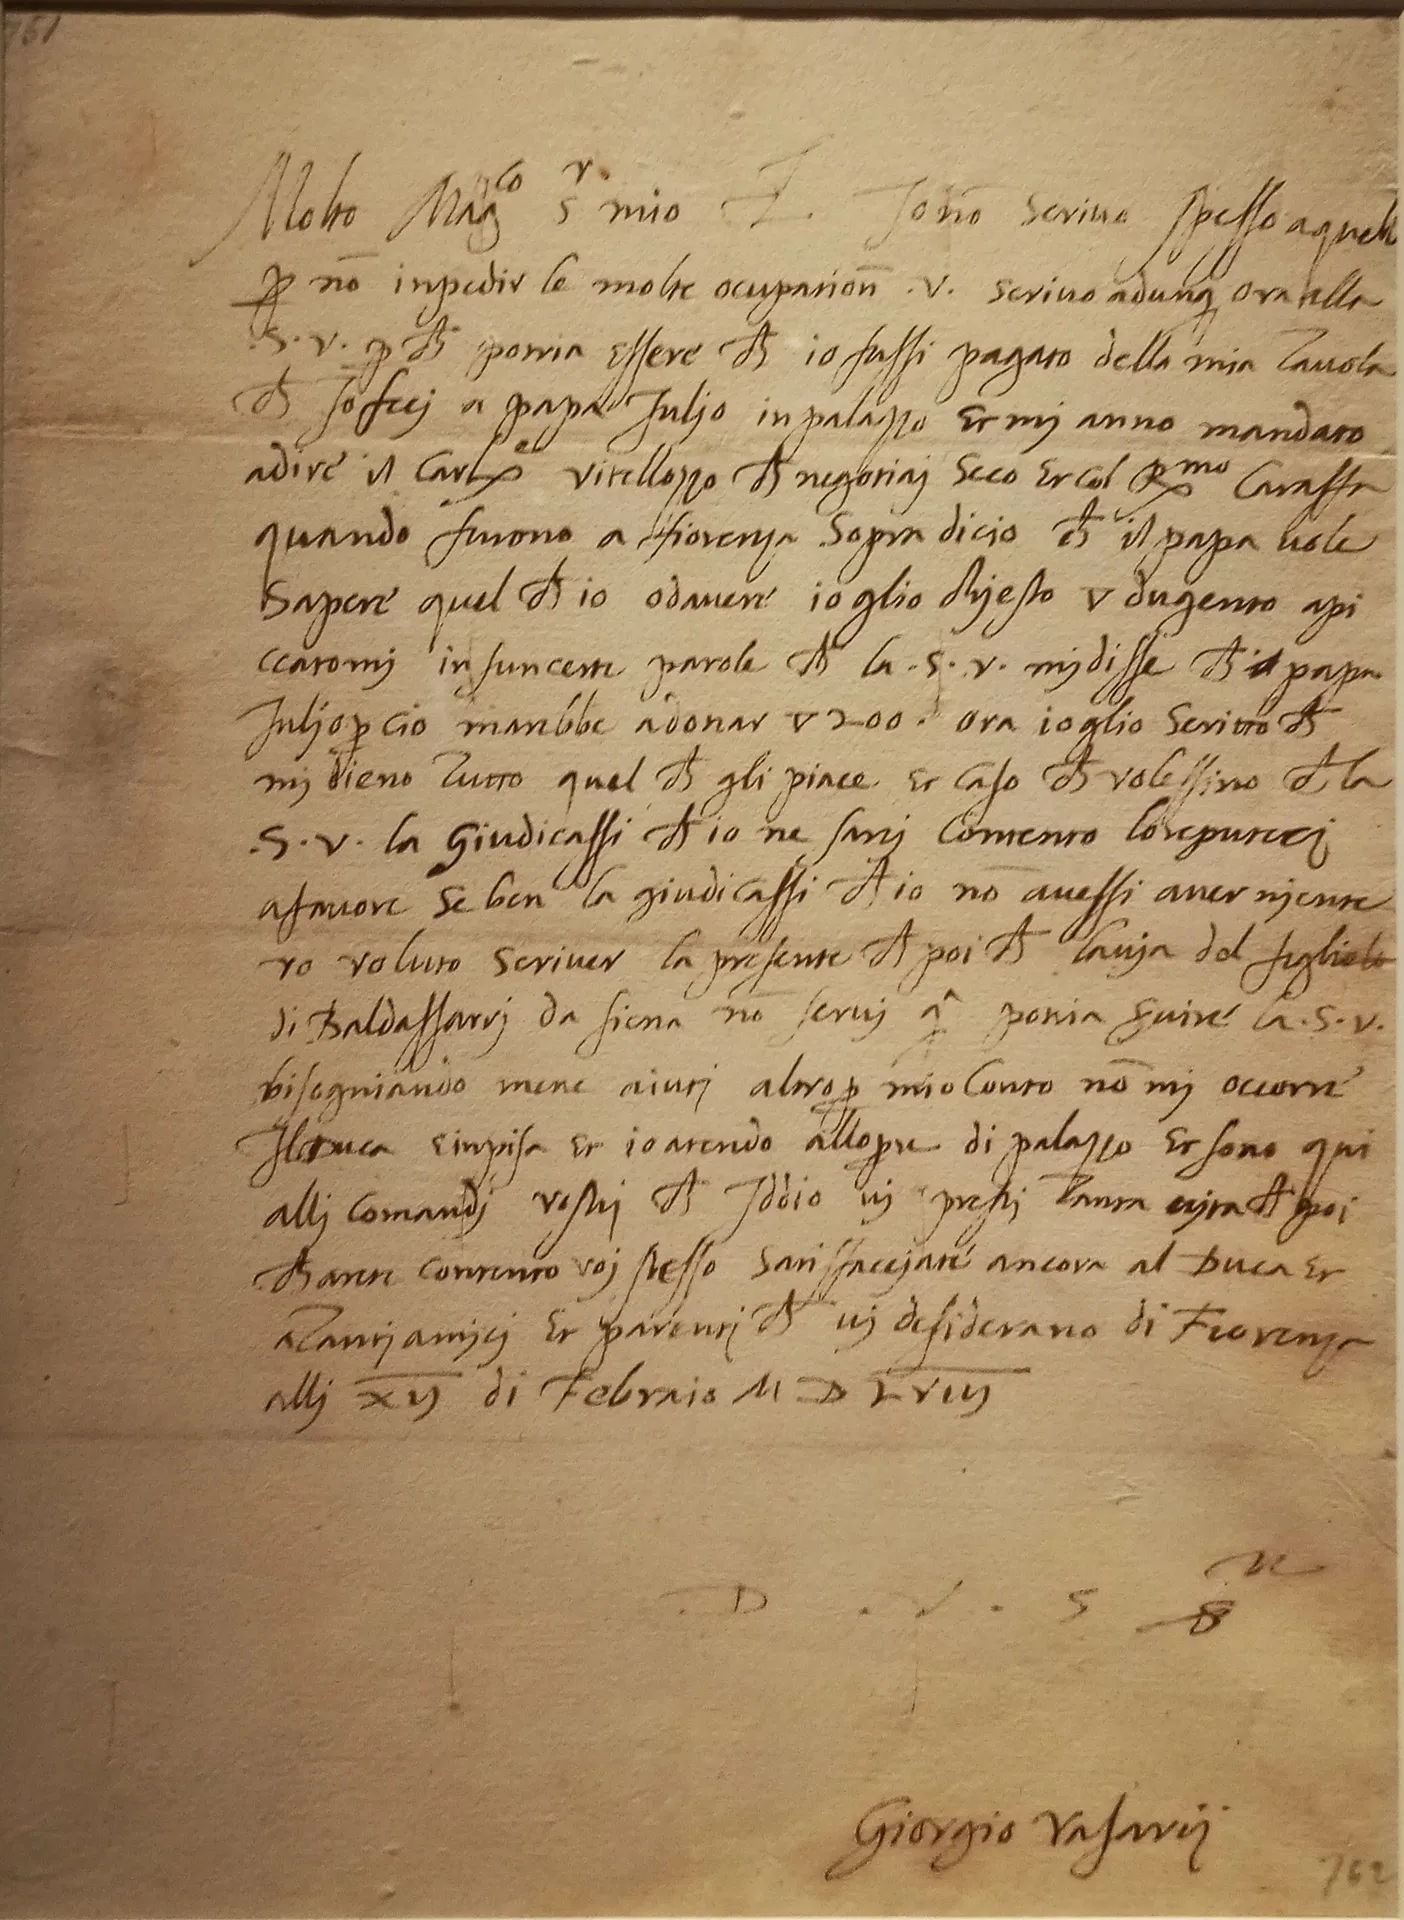 761
Molto Mag.co S.r mio Io nō scrivo spesso a quella
ꝑ nō inpedir le molte ocupationi .V. scrivo adunq̃ ora alla
.S.V. ꝑ cħ potria essere cħ io fussi pagato della mia tavola
cħ io feci a papa Julio in palazzo et mi anno mandato
a dire il Car.le Vitellozzo cħ negotiaj seco et col R.mo Caraffa
quando furono a Fiorenza sopra dicio cħ il papa vole
sapere quel cħ io o d avere io glio chjesto ▽ dugento api
ccatomj in su ncerte parole cħ la .S.V. mj disse cħ il papa
Juljo ꝑ cio marebbe a donar ▽ 200. ora io glio scritto cħ
mi dieno tutto quel cħ gli piace et caso cħ volessino cħ la
.S.V. la giudicassi cħ io ne sarej contento lo reputerej
a favore se ben la giudicassi cħ io nō avessi aver njente
ro voluto scriver la presente cħ poi cħ lauja del figliolo
di Baldassarrj da Siena nō servj potria servire la .S.V.
bisogniando mene aiutj altro ꝑ mio conto nō mi occorre
Il Duca e in pisa et io atendo all opre di palazzo et sono qui
allj comandj vostrj cħ Iddio vj prestj tanta vjta cħ poi
cħ arete contento voj stesso satisfaccjate ancora al Duca et
a tantj amjcj et parentj cħ vj desiderano di Fiorenza
allj XIJ di Febraio M D LVIIJ
. D . V . S
Giorgio Vasarij
762